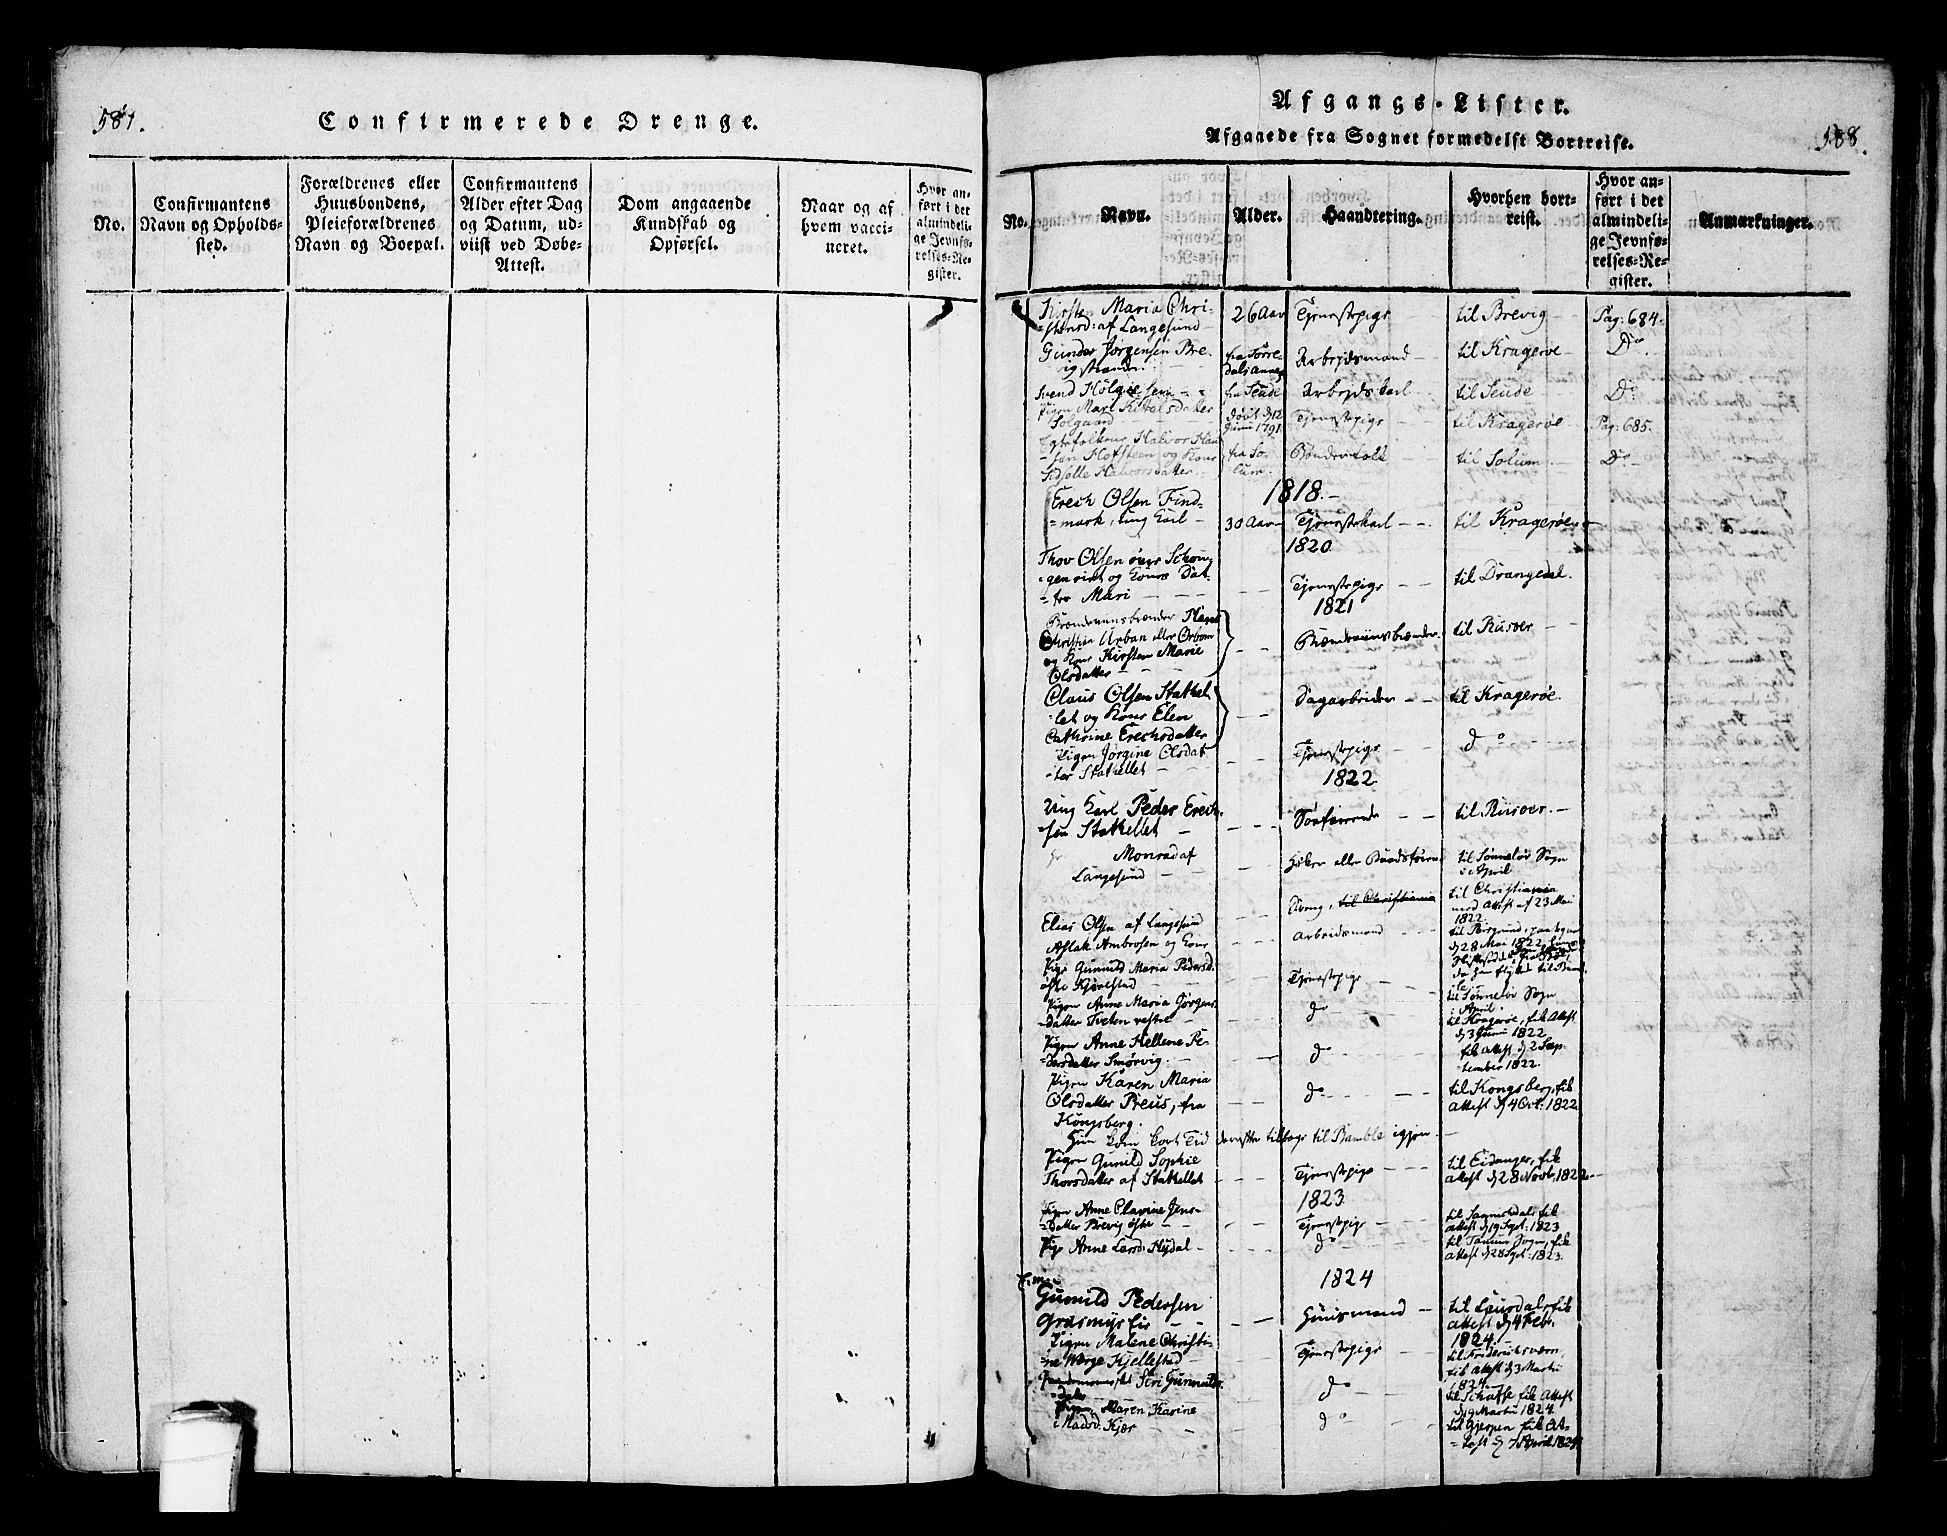 587.
Confirmerede Drenge.
No.
Confirmantens
Navn og Opholds-
sted.
Forældrenes eller
Huusbondens,
Pleieforældrenes
Navn og Boepæl.
Confirmantens
Alder efter Dag
og Datum, ud-
viist ved Døbe-
Attest.
Dom angaaende
Kundskab og
Opførsel.
Naar og af
hvem vacci-
neret.
Hvor an-
ført i det
almindeli-
ge Jevnfø-
relses-Re-
gister.
Afgangs-Lister.
588.
Afgaaede fra Sognet formedelst Bortreise.
No.
Navn.
Alder.
Haandtering.
Hvorhen bort-
reist.
Hvor an-
ført i det
almindeli-
ge Jevnfø-
relses-Re-
gister.
Anmærkninger.
Kirsten Maria Chri-
-stensd: af Langesund 26 Aar Tjenestepige til Brevig Pag: 684.
Gunder Jørgensen Bre-
vigstranden fra Tørre-
dals Annex Arbejdsmand til Kragerøe Do
Svend Holgersen fra Seude Arbejdskarl til Seude Do
Pigen Mari Kitelsdatter
Solgaard døbt d 12
Juni 1791 Tjenestepige til Kragerøe Pag: 685.
Egtefolkene Halvor Han-
sen Hofsteen og Kone
Sidselle Halvorsdatter fra So-
lum. Bønderfolk til Solum. Do
1818.
Erech Olsen Find-
-mark, ung Karl 30 Aar Tjenestekarl til Kragerøe
1820
Thov Olsen
og Kones Dat-
-ter Mari Tjenestepige til Drangedal.
1821
Brændeviinsbrænder Hans
Christian Urban eller Orbom
og Kone Kirsten Marie
Olsdatter Brændeviinsbrænder til Riisøer
Claus Olsen Stathel-
-let og Kone Elen
Cathrine Erechsdatter Dagarbeider til Kragerøe.
Pigen Jørgine Olsdat-
-ter Stathellet Tjenestepige do
1822.
Ung Karl Peder Erich-
sen Stathellet Søefarende til Riisøer.
Hr Monrad af
Langesund Høker eller til Sønneløv Sogn
i April
Elias Olsen af Langesund Dreng, til Christiania til Christiania
med Attest af 23 Mai
1822.
Aslak Ambrosen og Kone arbeidsmand til Porsgrund,
d 28 Mai 1822
Pige Gunnild Maria Pedersd.
østre Kjørlestad Tjenestepige til Sønneløv Sogn
i April.
Pigen Anne Maria Jørgens-
-datter Tveten vestre do til Kragerøe, fik Attest
d 3 Juni 1822
Pigen Anne Hellene Pe-
-dersdatter Smørvig. do fik attest d 2 Sep-
-tember 1822.
Pigen Karen Maria
Olsdatter Preus, fra
Kongsberg. do til Kongsberg, fik
attest d 4 Oct: 1822
Hun kom kort Tid derefter tilbage til Bamble igjen
Pigen Gunild Sophie
Thorsdatter af Stathellet Tjenestepige til Eidanger, fik
attest d 28 Novb. 1822
1823
Pigen Anne Clavine Jens-
-datter Brevig østre Tjenestepige til Sannikedal, fik
attest d 19 Sept: 1823
Pige Anne Larsd: Hydal do til Tanum Sogn, fik
attest d 28 Sept: 1823.
1824
Gunuld Pedersen
Grasmyr Eie Huusmand til Laurdal, fik
attest d 4 Feb.
1824.
Pigen Malene Christi-
-ne Werge Kjellestad Tjenestepige til Frederiksværn,
fik attest d 3 Martii
1824.
Siri Gunnuls-
datter do fik Attest
d 9 Martii 1824.
Pigen Maren Karine
Madsd. Kjær do til Gjerpen fik At-
-test d 7 April 1824